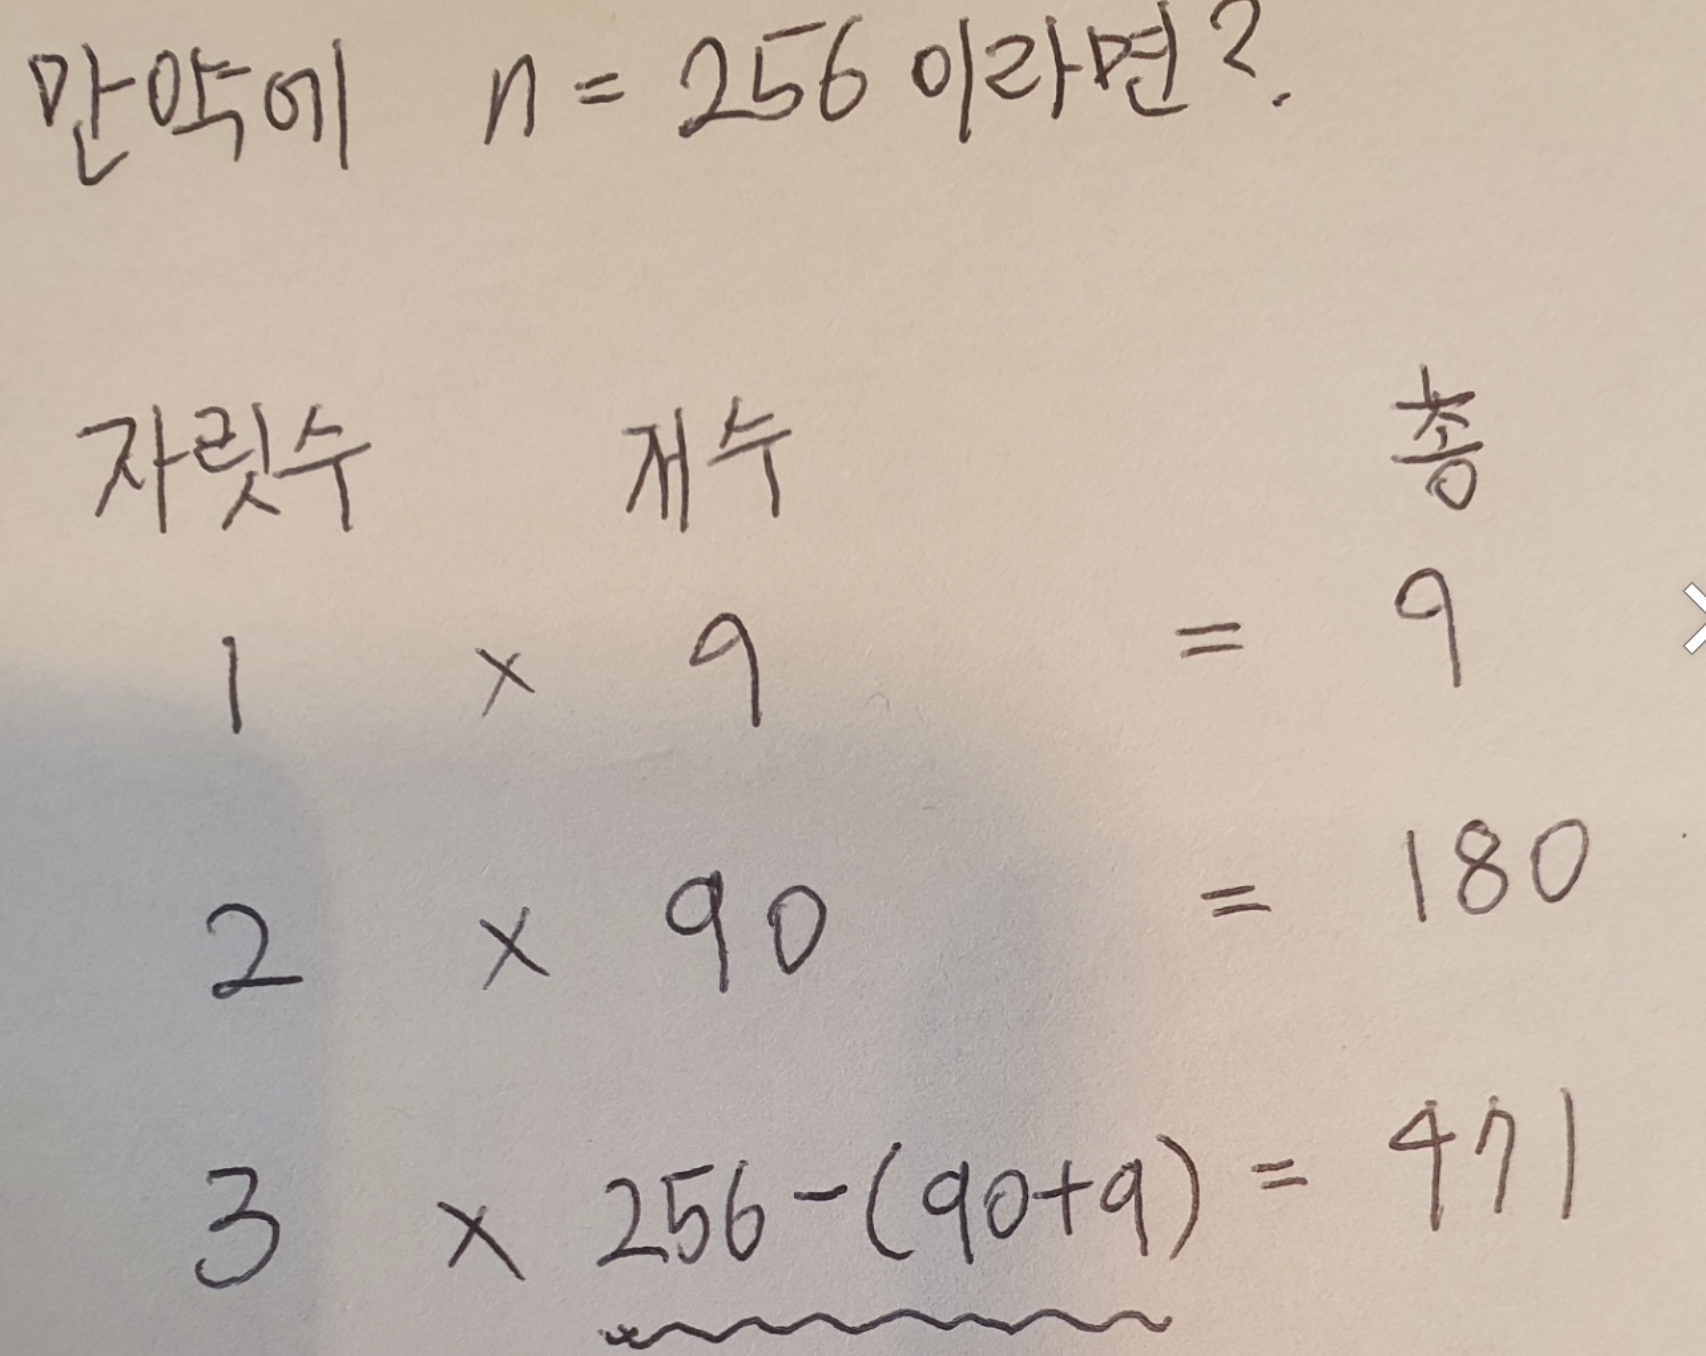 만약에 n = 256 이라면?.
자릿수 개수 총
1 × 9 = 9
2 × 90 = 180
3 × 256-(90+9) = 471